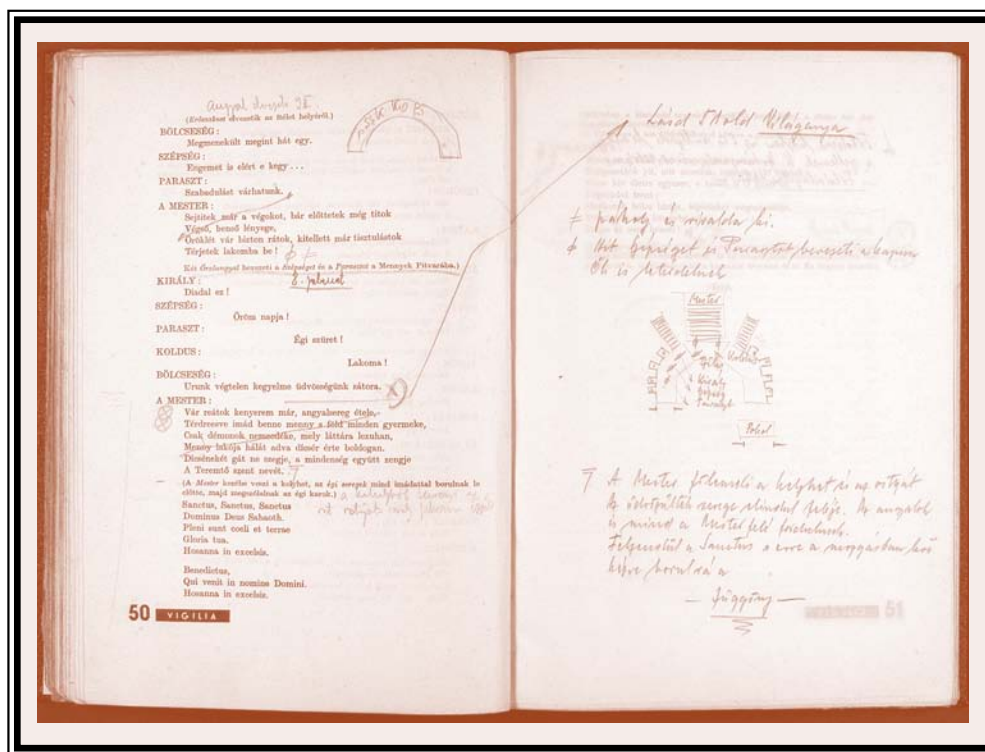 (Erőszakosan elvezetik az ítélet helyéről.)
BÖLCSESÉG:
Megmenekült megint hát egy.
SZÉPSÉG:
Engemet is elért e kegy...
PARASZT:
Szabadulást várhatunk.
A MESTER:
Sejtitek már a végokot, bár előttetek még titok
Végső, benső lényege,
Öröklét vár bizton rátok, kitellett már tisztulástok
Térjetek lakomba be!
Két Őrangyal bevezeti a Szépséget és a Parasztot a Mennyek Pitvarába.)
KIRÁLY:
Diadal ez!
SZÉPSÉG:
Öröm napja!
PARASZT:
Égi szüret!
KOLDUS:
Lakoma!
BÖLCSESÉG:
Urunk végtelen kegyelme üdvösségünk sátora.
A MESTER:
Vár reátok kenyerem már, angyalsereg étele,
Térdreesve imád benne menny s föld minden gyermeke,
Csak démonok nemeedéke, mely láttára lezuhan,
Menny lakója hálát adva dicsér érte boldogan.
Dicséneket gát ne szegje, a mindenség együtt zengje
A Teremtő szent nevét.
(A Mester kezébe veszi a kelyhet, az égi seregek mind imádattal borulnak le
előtte, majd megszólalnak az égi karok.)
Sanctus, Sanctus, Sanctus
Dominus Deus Sabaoth.
Pleni sunt coeli et terrae
Gloria tua.
Hosanna in excelsis.
Benedictus,
Qui venit in nomine Domini.
Hosanna in excelsis.
50 VIGILIA
Világanya
Mester
Király
Szépség
Paraszt
Pokol
A Mester felemeli a kelyhet és az ostyát
Az angyalok
is mind a Mester felé
Felzendül a Sanctus s erre a
képre borul rá a
— függöny —
51